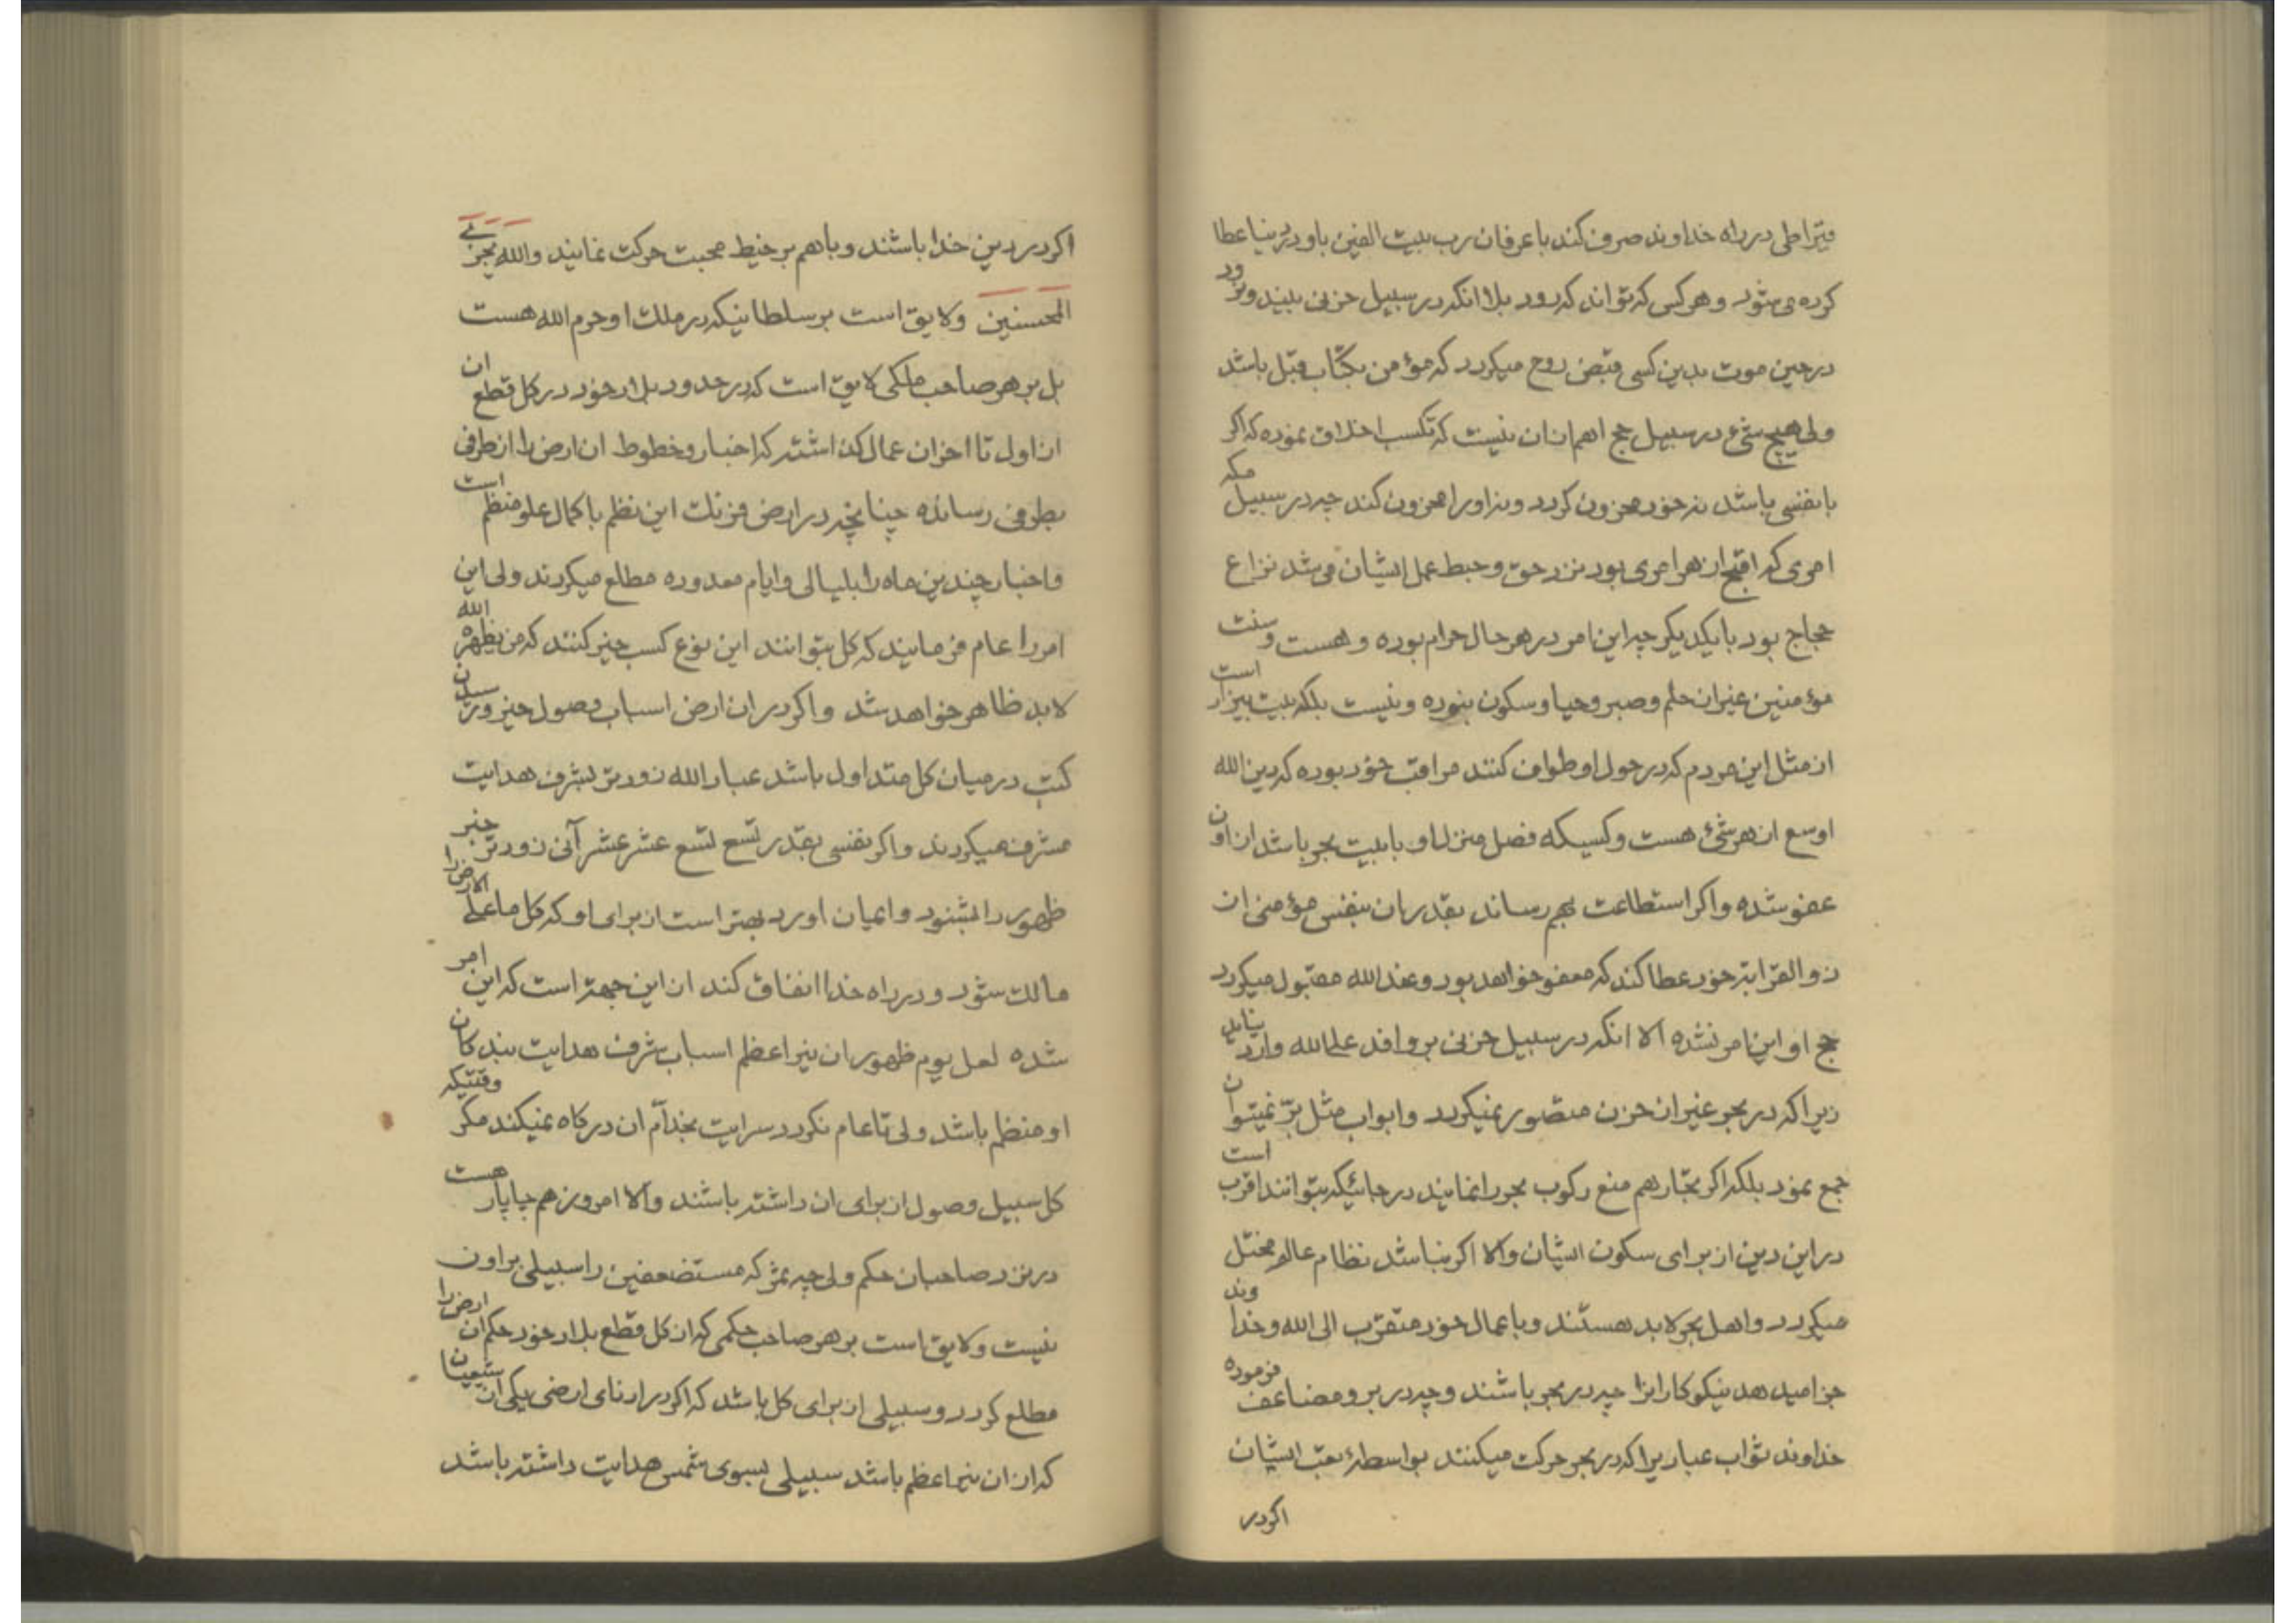 قیراطی در راه خداوند صرف کند با عرفان رب بیت الفین باو در دنیا عطا
کرده می شود و هر کس که تواند که رود بلا انکه در سبیل حزنی بیند و نرود
در حین موت بدین کسی قبض روح میکردد که مؤمن بکتاب قبل باشد
ولی هیچ شئ در سبیل حج اهم از ان نیست که تکسب اخلاق نموده که اکر
با نفسی باشد نه خود محزون کردد و نه او را محزون کند چه در سبیل مکه
امری که اقبح از هر امری بود نزد حق و حبط عمل ایشان می شد نزاع
حجاج بود با یکدیکر چه این امر در هر حال حرام بوده و هست و سنت
مؤمنین غیر از حلم و صبر و حیا و سکون نبوده و نیست بلکه بیت بیزار است
از مثل این مردم که در حول او طواف کنند مراقب خود بوده که دین الله
اوسع از هر شئ هست و کسیکه فصل منزل او با بیت بحر باشد از اون
عفو شده و اکر استطاعت بهم رساند بقدر ان بنفس مؤمنی از
ذو القرابته خود عطا کند که معفو خواهد بود و عند الله مقبول میکردد
حج او این امر نشده الا انکه در سبیل حزنی بر وافد علی الله وارد نیاید
زیرا که در بحر غیر از حزن متصور نمیکردد و ابواب مثل بر نمیتوان
جمع نمود بلکه اکر تجار هم منع رکوب بحر را نمایند در جائیکه بتوانند اقرب است
در این دین از برای سکون ایشان والا اکر نباشد نظام عالم مختل
میکردد و اهل بحر لابد هستند و باعمال خود متقرب الی الله و خداوند
جزا میدهد نیکوکارانرا چه در بحر باشند و چه در بر و مضاعف فرموده
خداوند ثواب عبادیرا که در بحر حرکت میکنند بواسطهٔ تعب ایشان
اکر در
اکر در دین خدا باشند و باهم بر خیط محبت حرکت نمایند و الله یجزی
المحسنین ولایق است بر سلطانیکه در ملک او حرم الله هست
بل بر هر صاحب ملکی لایق است که در حدود بلاد خود در کل قطع ان
از اول تا اخر ان عمال کذاشته که اخبار و خطوط ان ارض را از طرفی
بطرفی رسانده چنانچه در ارض فرنک این نظم با کمال علو منظم است
و اخبار چندین ماه را بلیالی و ایام معدوده مطلع میکردند ولی این
امر را عام فرمایند که کل بتوانند این نوع کسب خبر کنند که من یظهره الله
لابد ظاهر خواهد شد و اکر در ان ارض اسباب وصول خبر و رسیدن
کتب در میان کل متداول باشد عباد الله زودتر بشرف هدایت
مشرف میکردند و اکر نفسی بقدر تسع تسع عشر عشر آنی زودتر خبر
ظهور را بشنود و ایمان اورد بهتر است از برای او که کل ما علی الارض را
مالک شود و در راه خدا انفاق کند از این جهة است که این امر
شده لعل یوم ظهور ان نیر اعظم اسباب شرف هدایت بندکان
او منظم باشد ولی تا عام نکردد سرایت بخدام ان درکاه نمیکند مکر وقتیکه
کل سبیل وصول از برای ان داشته باشند والا امروز هم چاپار هست
در نزد صاحبان حکم ولی چه ثمر که مستضعفین را سبیلی بر اون
نیست ولایق است بر هر صاحب حکمی که از کل قطع بلاد خود حکم ان ارض را
مطلع کردد و سبیلی از برای کل باشد که اکر در ادنای ارضی یکی از شیعیان
که از ان نیر اعظم باشد سبیلی بسوی شمس هدایت داشته باشد